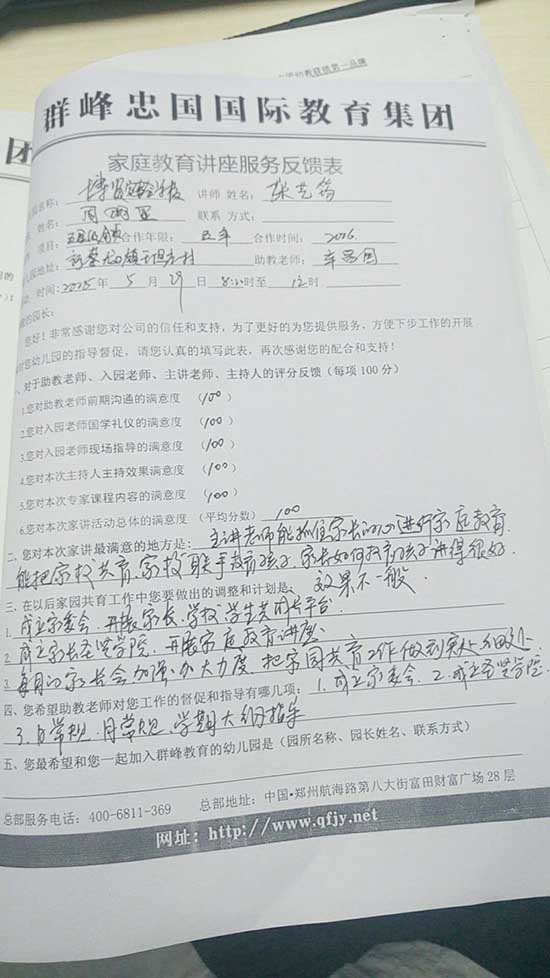 群峰忠国国际教育集团
家庭教育讲座服务反馈表
名称： 博贤实验学校 讲师 姓名： 张艺馨
姓名： 联系 方式：
项目： 合作年限： 五年 合作时间： 2016.
地址： 助教老师：
时间：2025年 5 月 29 日 8:20时至 12时
的园长：
您好！非常感谢您对公司的信任和支持，为了更好的为您提供服务，方便下步工作的开展
您幼儿园的指导督促，请您认真的填写此表，再次感谢您的配合和支持！
、对于助教老师、入园老师、主讲老师、主持人的评分反馈（每项100 分）
1.您对助教老师前期沟通的满意度 （100 ）
2.您对入园老师国学礼仪的满意度 （100 ）
3.您对入园老师现场指导的满意度 （100 ）
4.您对本次主持人主持效果满意度 （100 ）
5.您对本次专家课程内容的满意度 （100 ）
6.您对本次家讲活动总体的满意度 （平均分数） 100
二、您对本次家讲最满意的地方是： 主讲老师能抓住家长的心进行家庭教育
能把家校共育，家校联手教育孩子，家长如何教育孩子讲得很好.
三、在以后家园共育工作中您要做出的调整和计划是： 效果不一般
1. 成立家委会，开展家长、学校、学生共同平台.
2. 成立家长圣贤学院，开展家庭教育讲座
3. 每月的家长会加强加大力度，把家园共育工作做到实处细处.
四、您希望助教老师对您工作的督促和指导有哪几项： 1. 成立家委会. 2. 成立圣贤学院.
3. 日常规，月常规，学期大纲指导
五、您最希望和您一起加入群峰教育的幼儿园是（园所名称、园长姓名、联系方式）
总部服务电话：400-6811-369 总部地址：中国·郑州航海路第八大街富田财富广场 28 层
网址：http://www.qfjy.net